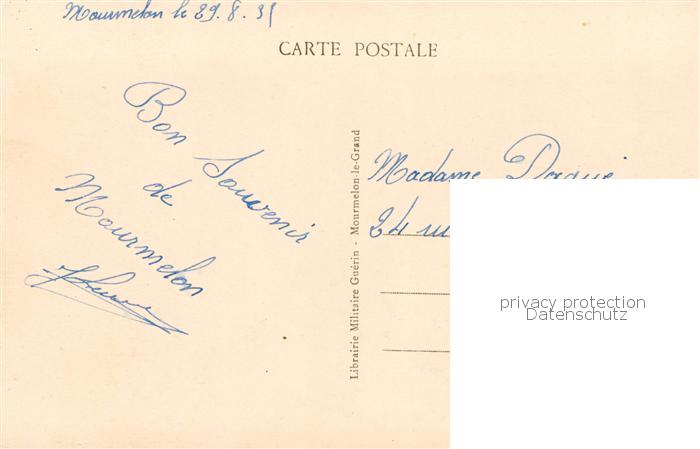 Mourmelon le 29.8.35
CARTE POSTALE
Bon Souvenir
de
Mourmelon
Librairie Militaire Guérin - Mourmelon-le-Grand
Madame
24
privacy protection
Datenschutz